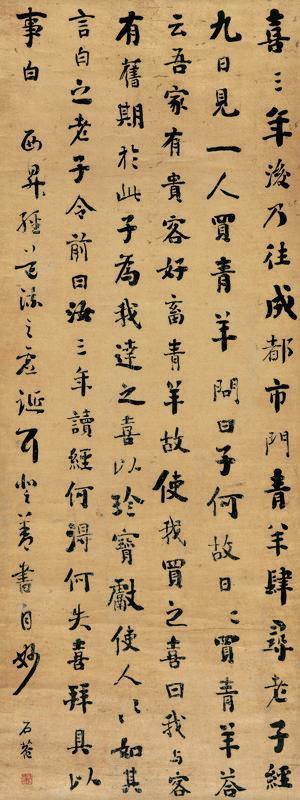 喜三年後乃往成都市門青羊肆尋老子經
九日見一人買青羊問曰子何故日〻買青羊答
云吾家有貴客好畜青羊故使我買之喜曰我与客
有舊期於此子為我達之喜以珍寶獻使人〻如其
言白之老子令前曰汝三年讀經何得何失喜拜具以
事白　西昇經
善書自妙
石菴